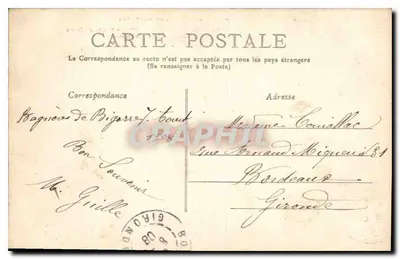 CARTE POSTALE
La Correspondance au recto n'est pas acceptée par tous les pays étrangers
(Se renseigner à la Poste)
Correspondance
Adresse
Bagnères de Bigorre 7 Aout
1908
Bon Souvenir
Guille
Madame
Rue Arnaud Miqueu 31
Bordeaux
Gironde
GIRONDE
08
CPAPHIL.COM